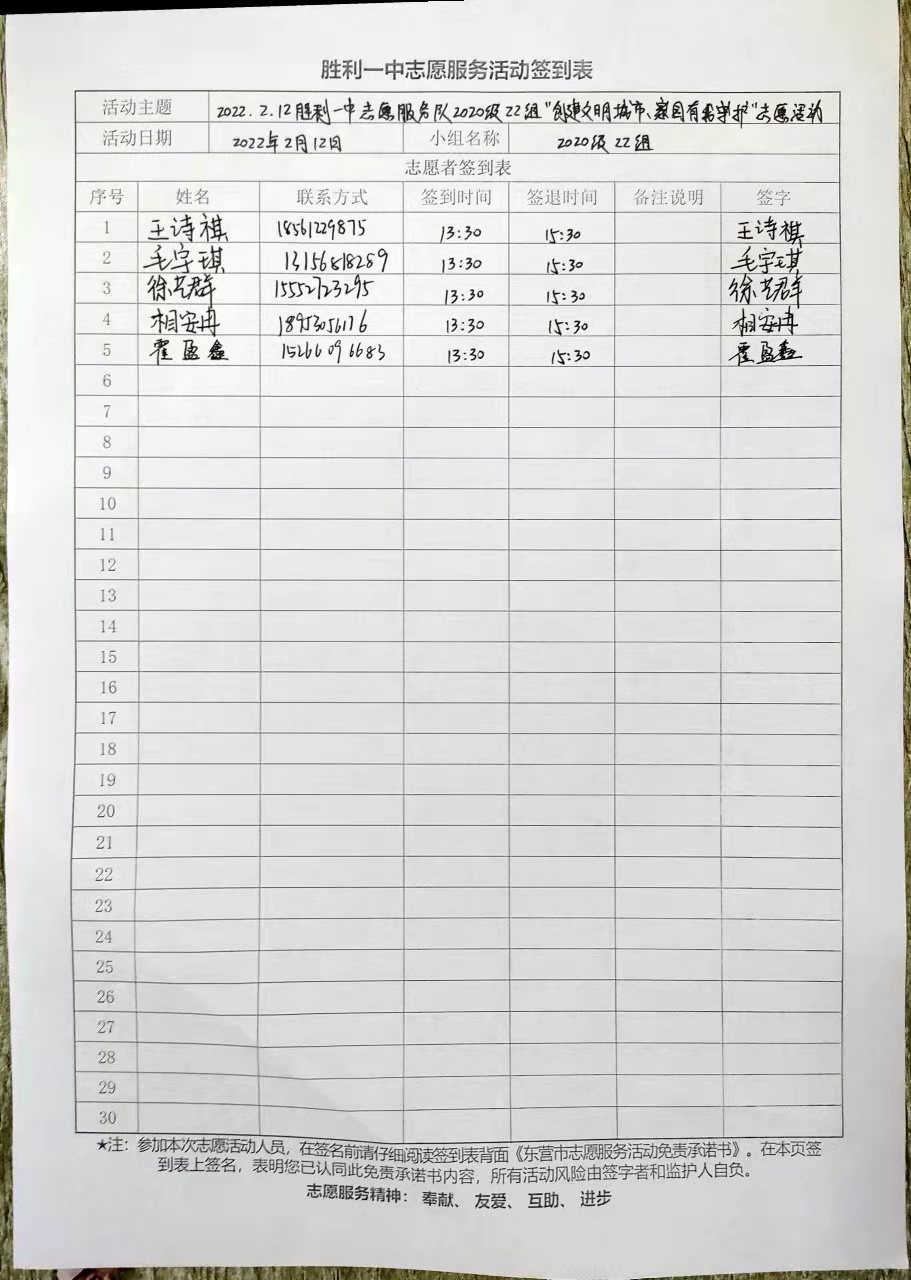 胜利一中志愿服务活动签到表
活动主题 2022.2.12胜利一中志愿服务队2020级22组“创建文明城市、家园有我守护”志愿活动
活动日期 2022年2月12日 小组名称 2020级22组
志愿者签到表
序号 姓名 联系方式 签到时间 签退时间 备注说明 签字
1 王诗祺 18561229875 13:30 15:30 王诗祺
2 毛宇琪 13156818289 13:30 15:30 毛宇琪
3 徐艺群 15552723295 13:30 15:30 徐艺群
4 相安冉 18953056176 13:30 15:30 相安冉
5 霍盈鑫 15266096683 13:30 15:30 霍盈鑫
6
7
8
9
10
11
12
13
14
15
16
17
18
19
20
21
22
23
24
25
26
27
28
29
30
★注：参加本次志愿活动人员，在签名前请仔细阅读签到表背面《东营市志愿服务活动免责承诺书》。在本页签
到表上签名，表明您已认同此免责承诺书内容，所有活动风险由签字者和监护人自负。
志愿服务精神：奉献、友爱、互助、进步